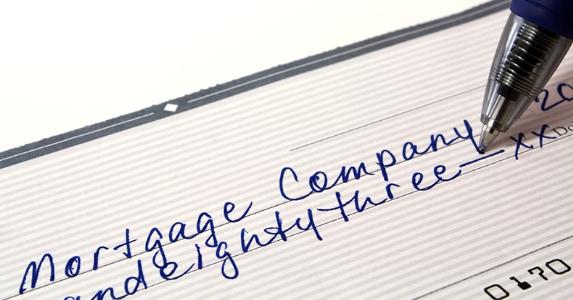 20
Mortgage Company
and eighty three — xx Do
0170